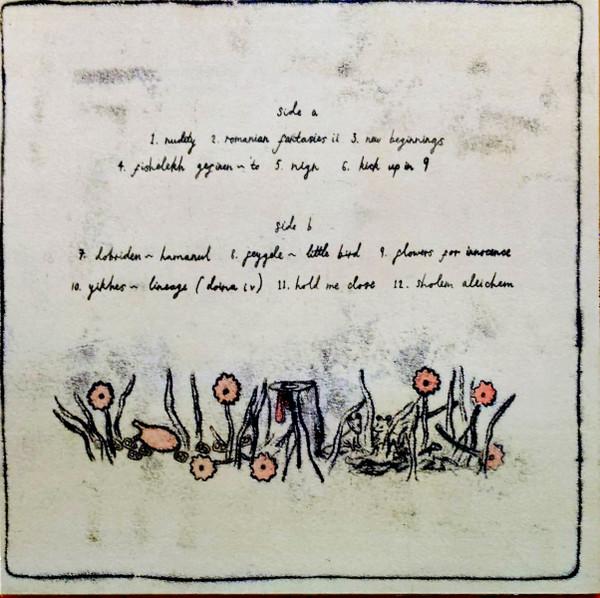 side a
1. nudity 2. romanian fantasies ii 3. new beginnings
4. fishelekh ~ to 5. nign 6. kick up in 9
side b
7. dobriden ~ 8. feygele ~ little bird 9. flowers for innocence
10. yikhes ~ lineage (doina iv) 11. hold me close 12. sholem aleichem